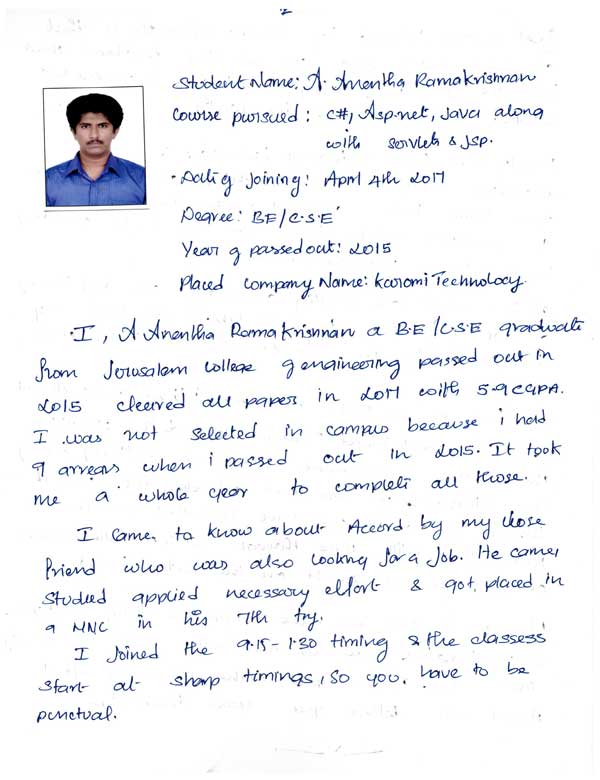 Student Name: A. Anantha Ramakrishnan
Course pursued: C#, Asp.net, Java along
with servlets & JSP.
Date of Joining: April 4th 2017
Degree: BE/C.S.E
Year of passed out: 2015
Placed Company Name: Karomi Technology.
I, A Anantha Ramakrishnan a B.E/CSE graduate
from Jerusalem college of engineering passed out in
2015 cleared all paper in 2017 with 5.9 CGPA.
I was not selected in campus because i had
9 arrears when i passed out in 2015. It took
me a whole year to complete all those.
I came to know about Accord by my close
friend who was also looking for a Job. He came,
studied applied necessary effort & got placed in
a MNC in his 7th try.
I Joined the 9.15-1.30 timing & the classess
start at sharp timings, so you have to be
punctual.